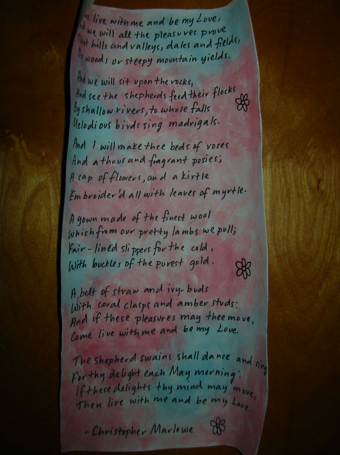 live with me and be my Love,
we will all the pleasures prove
hills and valleys, dales and fields,
woods or steepy mountain yields.
And we will sit upon the rocks,
And see the shepherds feed their flocks
By shallow rivers, to whose falls
Melodious birds sing madrigals.
And I will make thee beds of roses
And a thousand fragrant posies,
A cap of flowers, and a kirtle
Embroider'd all with leaves of myrtle.
A gown made of the finest wool
Which from our pretty lambs we pull;
Fair-lined slippers for the cold,
With buckles of the purest gold.
A belt of straw and ivy-buds
With coral clasps and amber studs:
And if these pleasures may thee move,
Come live with me and be my Love.
The shepherd swains shall dance and sing
For thy delight each May morning:
If these delights thy mind may move,
Then live with me and be my Love
-Christopher Marlowe